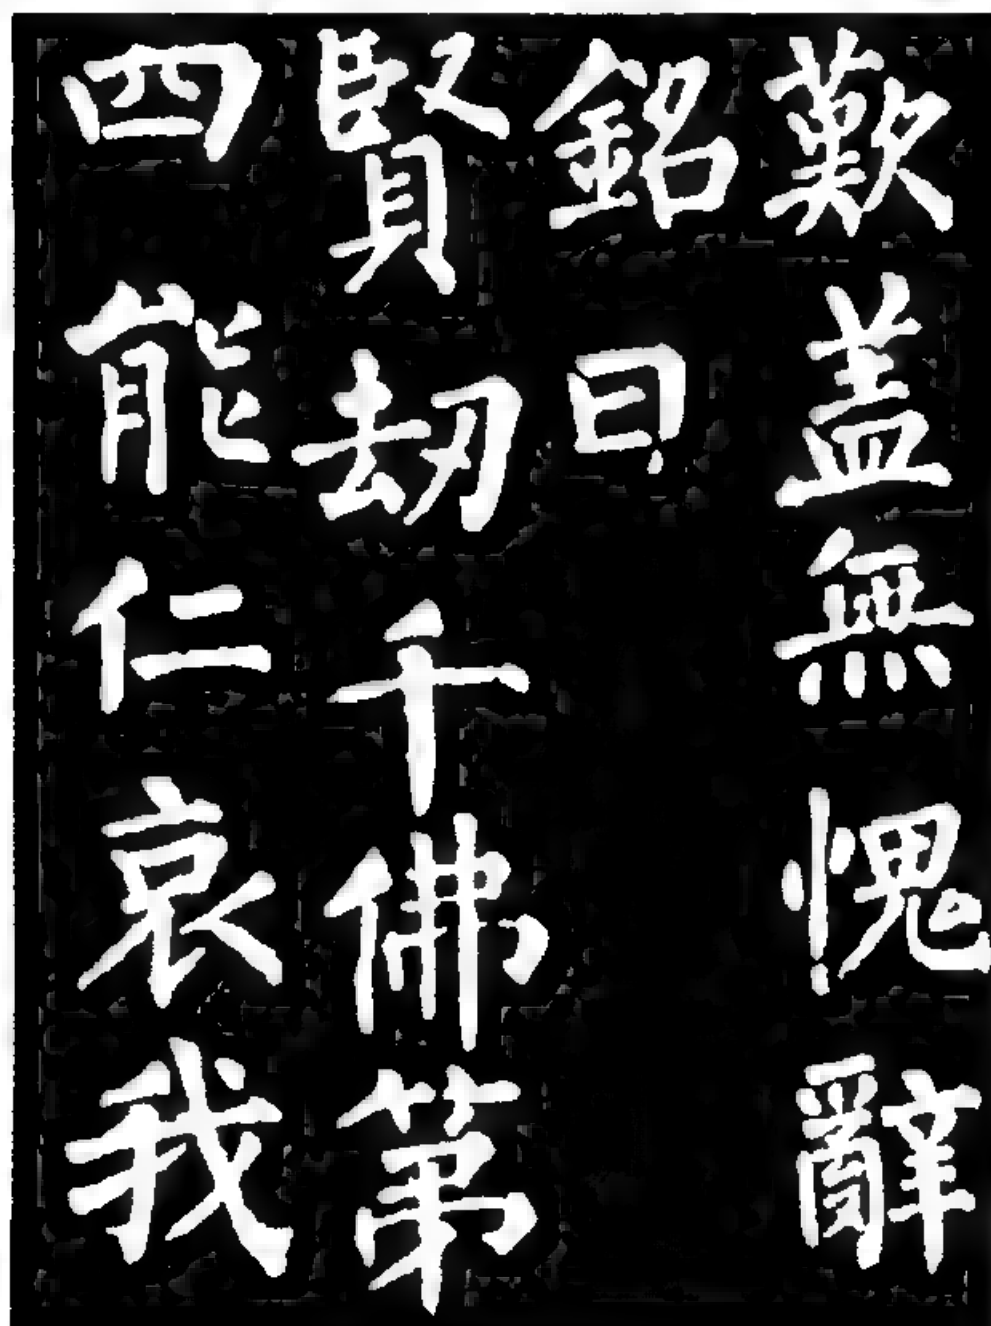 歎蓋無愧辭
銘曰
賢劫千佛第
四能仁哀我